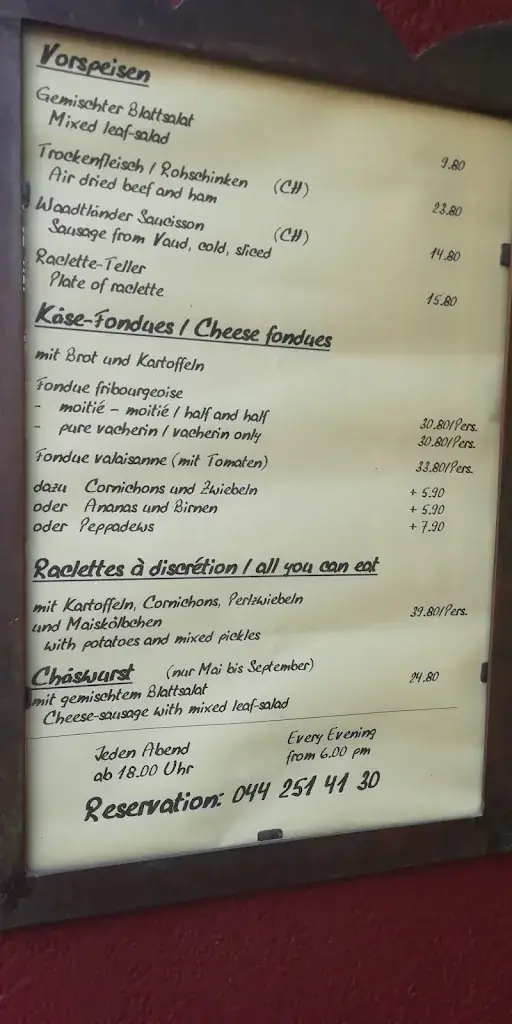 Vorspeisen
Gemischter Blattsalat
Mixed leaf-salad 9.80
Trockenfleisch / Rohschinken (CH)
Air dried beef and ham 23.80
Waadtländer Saucisson (CH)
Sausage from Vaud, cold, sliced 14.80
Raclette-Teller
Plate of raclette 15.80
Käse-Fondues / Cheese fondues
mit Brot und Kartoffeln
Fondue fribourgeoise
- moitié - moitié / half and half 30.80/Pers.
- pure vacherin / vacherin only 30.80/Pers.
Fondue valaisanne (mit Tomaten) 33.80/Pers.
dazu Cornichons und Zwiebeln + 5.90
oder Ananas und Birnen + 5.90
oder Peppadews + 7.90
Raclettes à discrétion / all you can eat
mit Kartoffeln, Cornichons, Perlzwiebeln
und Maiskölbchen 39.80/Pers.
with potatoes and mixed pickles
Chäswurst (nur Mai bis September) 24.80
mit gemischtem Blattsalat
Cheese-sausage with mixed leaf-salad
Jeden Abend Every Evening
ab 18.00 Uhr from 6.00 pm
Reservation: 044 251 41 30